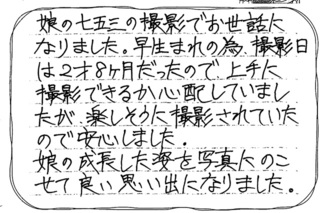 娘の七五三の撮影でお世話に
なりました。早生まれの為、撮影日
は2才8ヶ月だったので、上手に
撮影できるか心配していまし
たが、楽しそうに撮影されていた
ので安心しました。
娘の成長した姿を写真にのこ
せて良い思い出になりました。